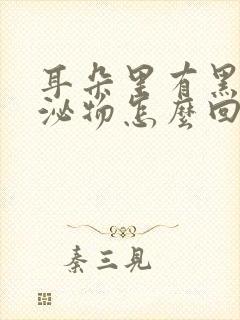 耳朵里有黑
泌物怎麼回
秦三見